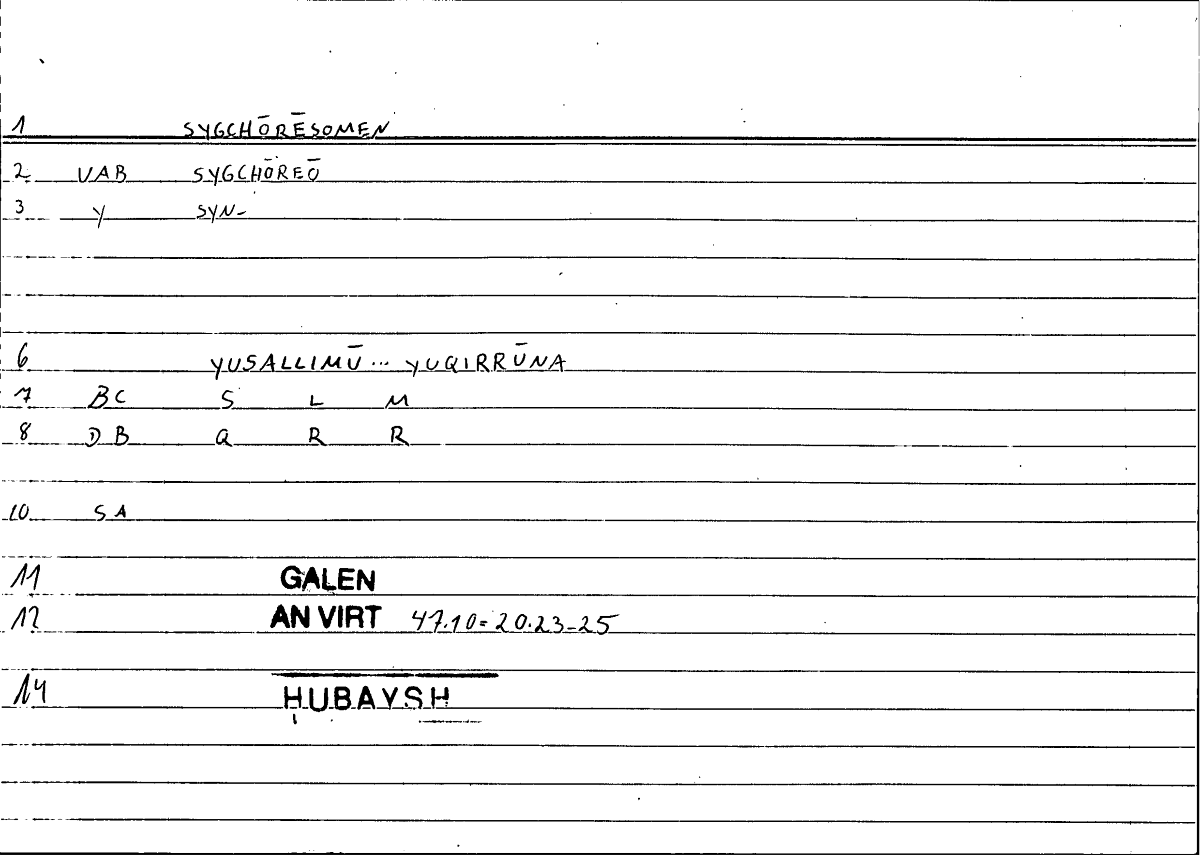 1 SYGCHŌRĒSOMEN
2 VAB SYGCHŌREŌ
3 Y SYN-
6 YUSALLIMŪ... YUQIRRŪNA
7 BC S L M
8 DB Q R R
10 SA
11 GALEN
12 AN VIRT 47.10=20.23-25
14 HUBAYSH